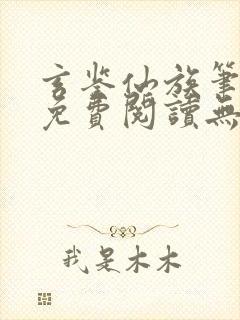 玄鉴仙族筆
免費閱讀無
我是木木